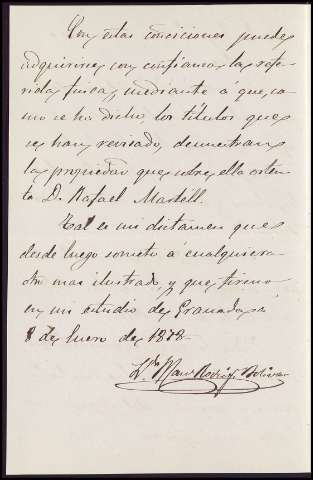 Con estas concisiones puede
adquirirse con confianza la refe-
rida finca, mediante a que, co-
mo se ha dicho, los títulos que
se han revisado, demuestran
la propiedad que sobre ella osten-
ta D. Rafael Martell.
Tal es mi dictamen que
desde luego someto á cualquiera
otro mas ilustrado, y que firmo
en mi estudio de Granada á
8 de Enero de 1878-
Ldo. Man Rodrig. Bolivar